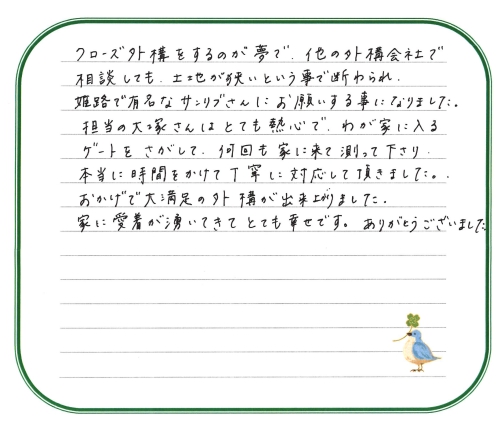 クローズ外構をするのが夢で、他の外構会社で
相談しても、土地が狭いという事で断わられ、
姫路で有名なサンリブさんにお願いする事になりました。
担当の大塚さんはとても熱心で、わが家に入る
ゲートをさがして、何回も家に来て測って下さり、
本当に時間をかけて丁寧に対応して頂きました。
おかげで大満足の外構が出来上がりました。
家に愛着が湧いてきてとても幸せです。ありがとうございました